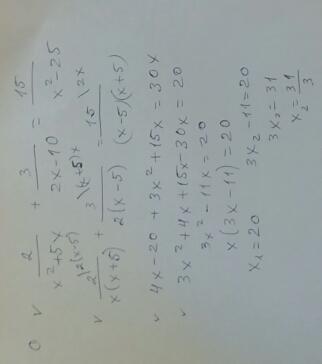 2/(x²+5x) + 3/(2x-10) = 15/(x²-25)
2\2(x-5)/(x(x+5)) + 3\(x+5)x/(2(x-5)) = 15\2x/((x-5)(x+5))
4x-20+3x²+15x=30x
3x²+4x+15x-30x=20
3x²-11x=20
x(3x-11)=20
x₁=20 3x₂-11=20
3x₂=31
x₂=31/3